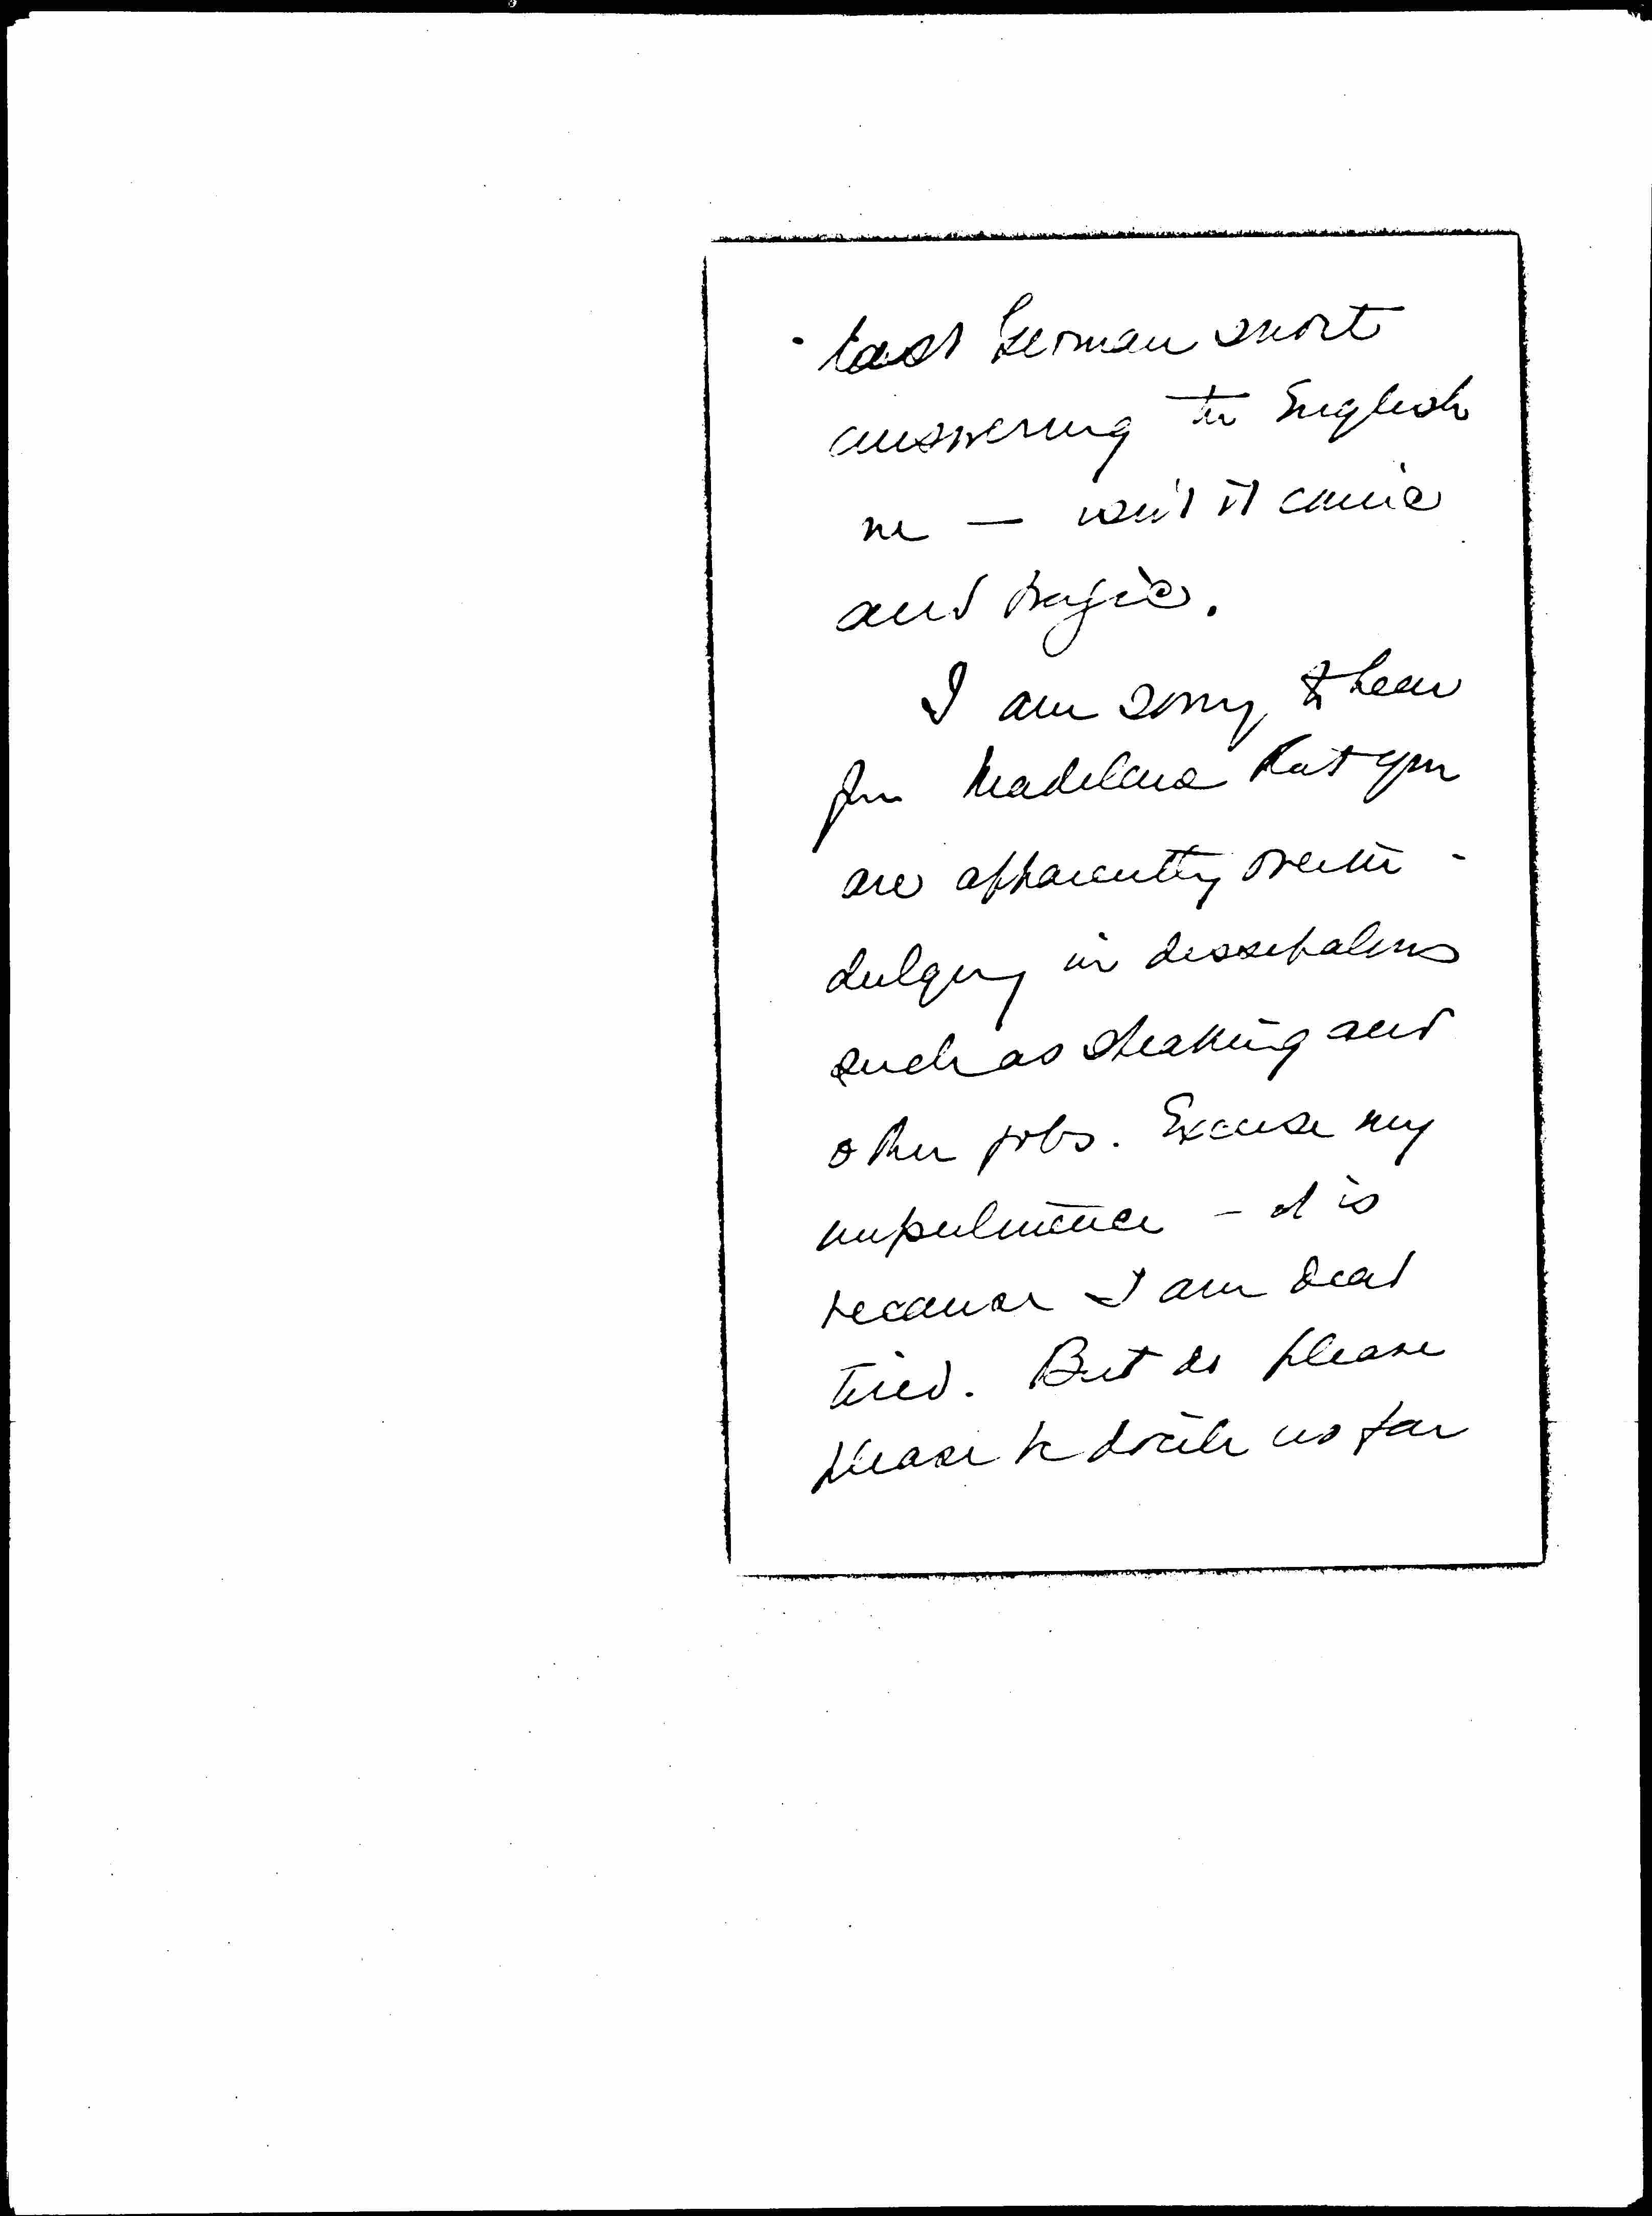 last German snort
answering the English
one — isn't it comic
and tragic.
I am sorry to hear
from Madeleine that you
are apparently overin-
dulging in dissipations
such as speaking and
other jobs. Excuse my
impertinence - it is
because I am dead
tired. But do please
please be docile as far